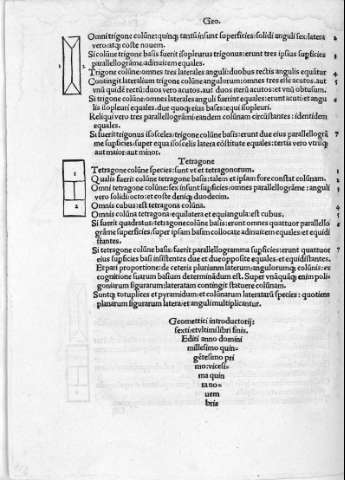 Geo.
Omni trigone colũne: quinq; tantũ insunt superficies: solidi anguli sex: latera
vero atq; coste nouem.
Si colũne trigone basis fuerit isopleurus trigonus: erunt tres ipsius supficies
parallelogrãme: adinuicem equales.
Trigone colũne: omnes tres laterales anguli: duobus rectis equãtur
Contingit lateralium trigone colũne angulorum: omnes tres esse acutos. aut
vnũ quidẽ rectũ: duos vero acutos. aut duos iterũ acutos: et vnũ obtusum.
Si trigone colũne: omnes laterales anguli fuerint equales: erunt acuti: et angu
lis isopleuri equales. due quoq; eius bases: equi isopleuri.
Reliqui vero tres parallelogrãmi: eandem colũnam circũstantes: identidem
equales.
Si fuerit trigonus isosceles: trigone colũne basis: erunt due eius parallelogrã
me supficies: super equa isoscelis latera cõstitute equales: tertia vero vtriuq;
aut maior: aut minor.
Tetragone
Tetragone colũne species: sunt vt et tetragonorum.
Qualis fuerit colũne tetragone basis: talem et ipsam fore constat colũnam.
Omni tetragone colũne: sex insunt supficies: omnes parallelogrãme: anguli
vero solidi: octo: et coste deniq; duodecim.
Omnis cubus: est tetragona colũna.
Omnis colũna tetragona: equilatera et equiangula: est cubus.
Si fuerit quadratus: tetragone colũne basis: erunt omnes quattuor parallelo
grãme superficies: super ipsam basim collocate: adinuicem equales: et equidi
stantes.
Si tetragone colũne basis: fuerit parallelogramma supficies: erunt quattuor
eius supficies basi insistentes due et due opposite equales: et equidistantes.
Et pari proportione: de ceteris planarum laterum: angulorumq; colũnis: ex
cognitione suarum basium determinãdum est. Super vnãquãq; enim poli-
goniarum figurarum: lateratam contingit statuere colũnam.
Suntq; totuplices et pyramidum: et colũnarum lateratarũ species: quotiens
planarum figurarum latera: et anguli multiplicantur.
Geometrici introductorij:
sexti et vltimi libri finis.
Editi anno domini
millesimo quin-
gẽtesimo pri
mo: vicesi-
ma quin
ta no-
uem
bris